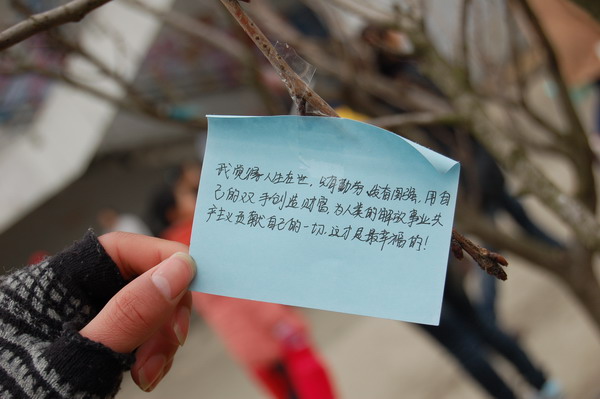 我觉得人生在世,要勤劳,要有图强,用自
己的双手创造财富,为人类的解放事业失
产主义贡献自己的一切,这才是最幸福的!